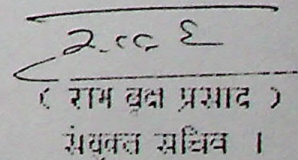 ( राम वृक्ष प्रसाद )
संयुक्त सचिव ।